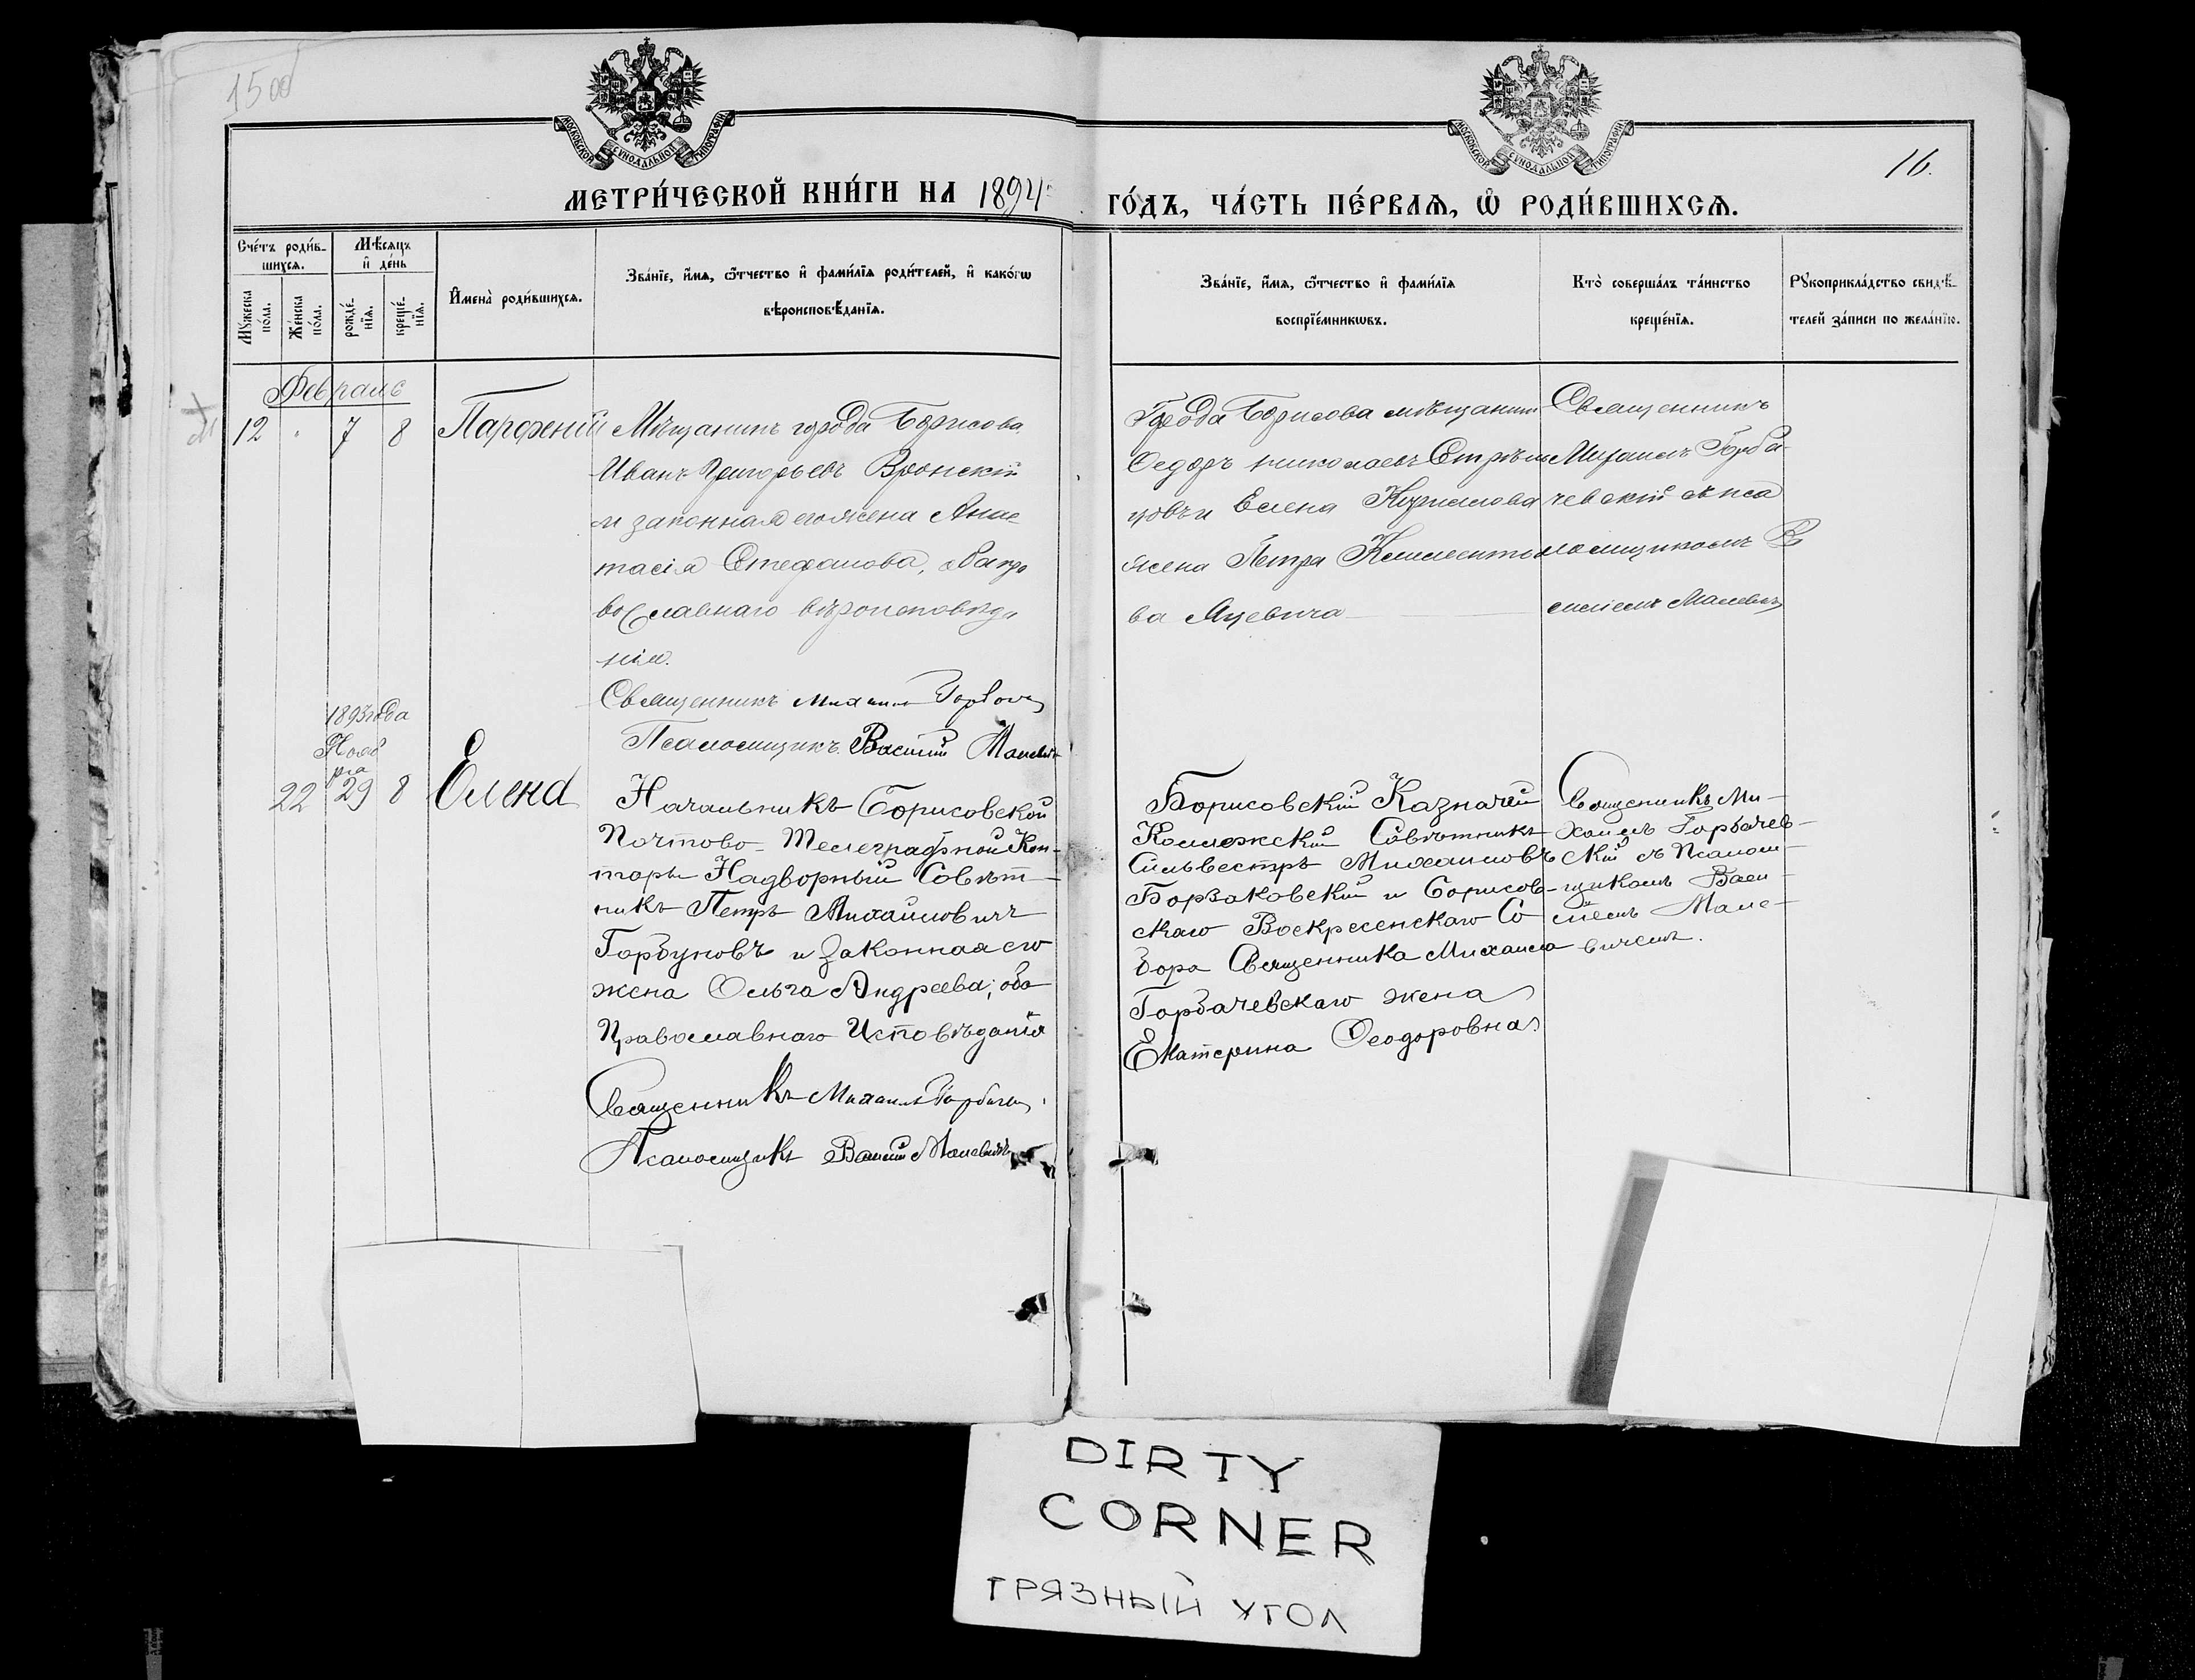 1500
МОСКОВСКОЙ СѴНОДАЛЬНОЙ ТИПОГРАФІИ
МОСКОВСКОЙ СѴНОДАЛЬНОЙ ТИПОГРАФІИ
16.
МЕТРИ́ЧЕСКОЙ КНИ́ГИ НА 1894
ГО́ДЪ, ЧА́СТЬ ПЕ́РВАѦ, Ѡ҆ РОДИ́ВШИХСѦ.
Сче́тъ роди́в-
шихсѧ.
Мѣ́сѧцъ
и҆ де́нь
Мꙋ́жеска
по́ла.
Же́нска
по́ла.
рожде́-
нїѧ.
креще́-
нїѧ.
И҆мена̀ роди́вшихсѧ.
Зва́нїе, и҆́мѧ, ѻ҆́тчество и҆ фами́лїѧ роди́телей, и҆ како́гѡ
вѣроисповѣ́данїѧ.
Зва́нїе, и҆́мѧ, ѻ҆́тчество и҆ фами́лїѧ
воспрїе́мникѡвъ.
Кто̀ соверша́лъ та́инство
креще́нїѧ.
Рꙋкоприкла́дство свидѣ́-
телей за́писи по жела́нїю.
Февраль
12 " 7 8 Парфеній
Мѣщанинъ города Борисова
Иванъ Григорьевъ Вронскій
и законная его жена Анас-
тасія Стефанова, оба пра
вославнаго вѣроисповѣда
нія.
Священникъ Михаилъ Горбачев
Псаломщикъ Василій Малевичъ
Города Борисова мѣщанинъ
Ѳедоръ Николаевъ Стрѣль
цовъ и Елена
жена Петра Климентье
ва Яцевича
Священникъ
Михаилъ Горба-
чевскій съ пса
ломщикомъ Ва
силіемъ Малевич
1893 года
Нояб
ря
22 29 8 Елена
Начальникъ Борисовской
Почтово-Телеграфной Кон-
торы Надворный Совѣт-
никъ Петръ Михайловичъ
Горбуновъ и законная его
жена Ольга Андреева; оба
Православнаго Исповѣданія
Священникъ Михаилъ Горбачев
Псаломщикъ Василій Малевичъ
Борисовскій Казначей
Коллежскій Совѣтникъ
Сильвестръ Михаиловъ
Борзаковскій и Борисов-
скаго Воскресенскаго Со
бора Священника Михаила
Горбачевскаго жена
Екатерина Ѳеодоровна
Священникъ Ми-
хаилъ Горбачев-
скій съ Псалом-
щикомъ Васи-
ліемъ Мале-
вичемъ.
DIRTY
CORNER
ГРЯЗНЫЙ УГОЛ